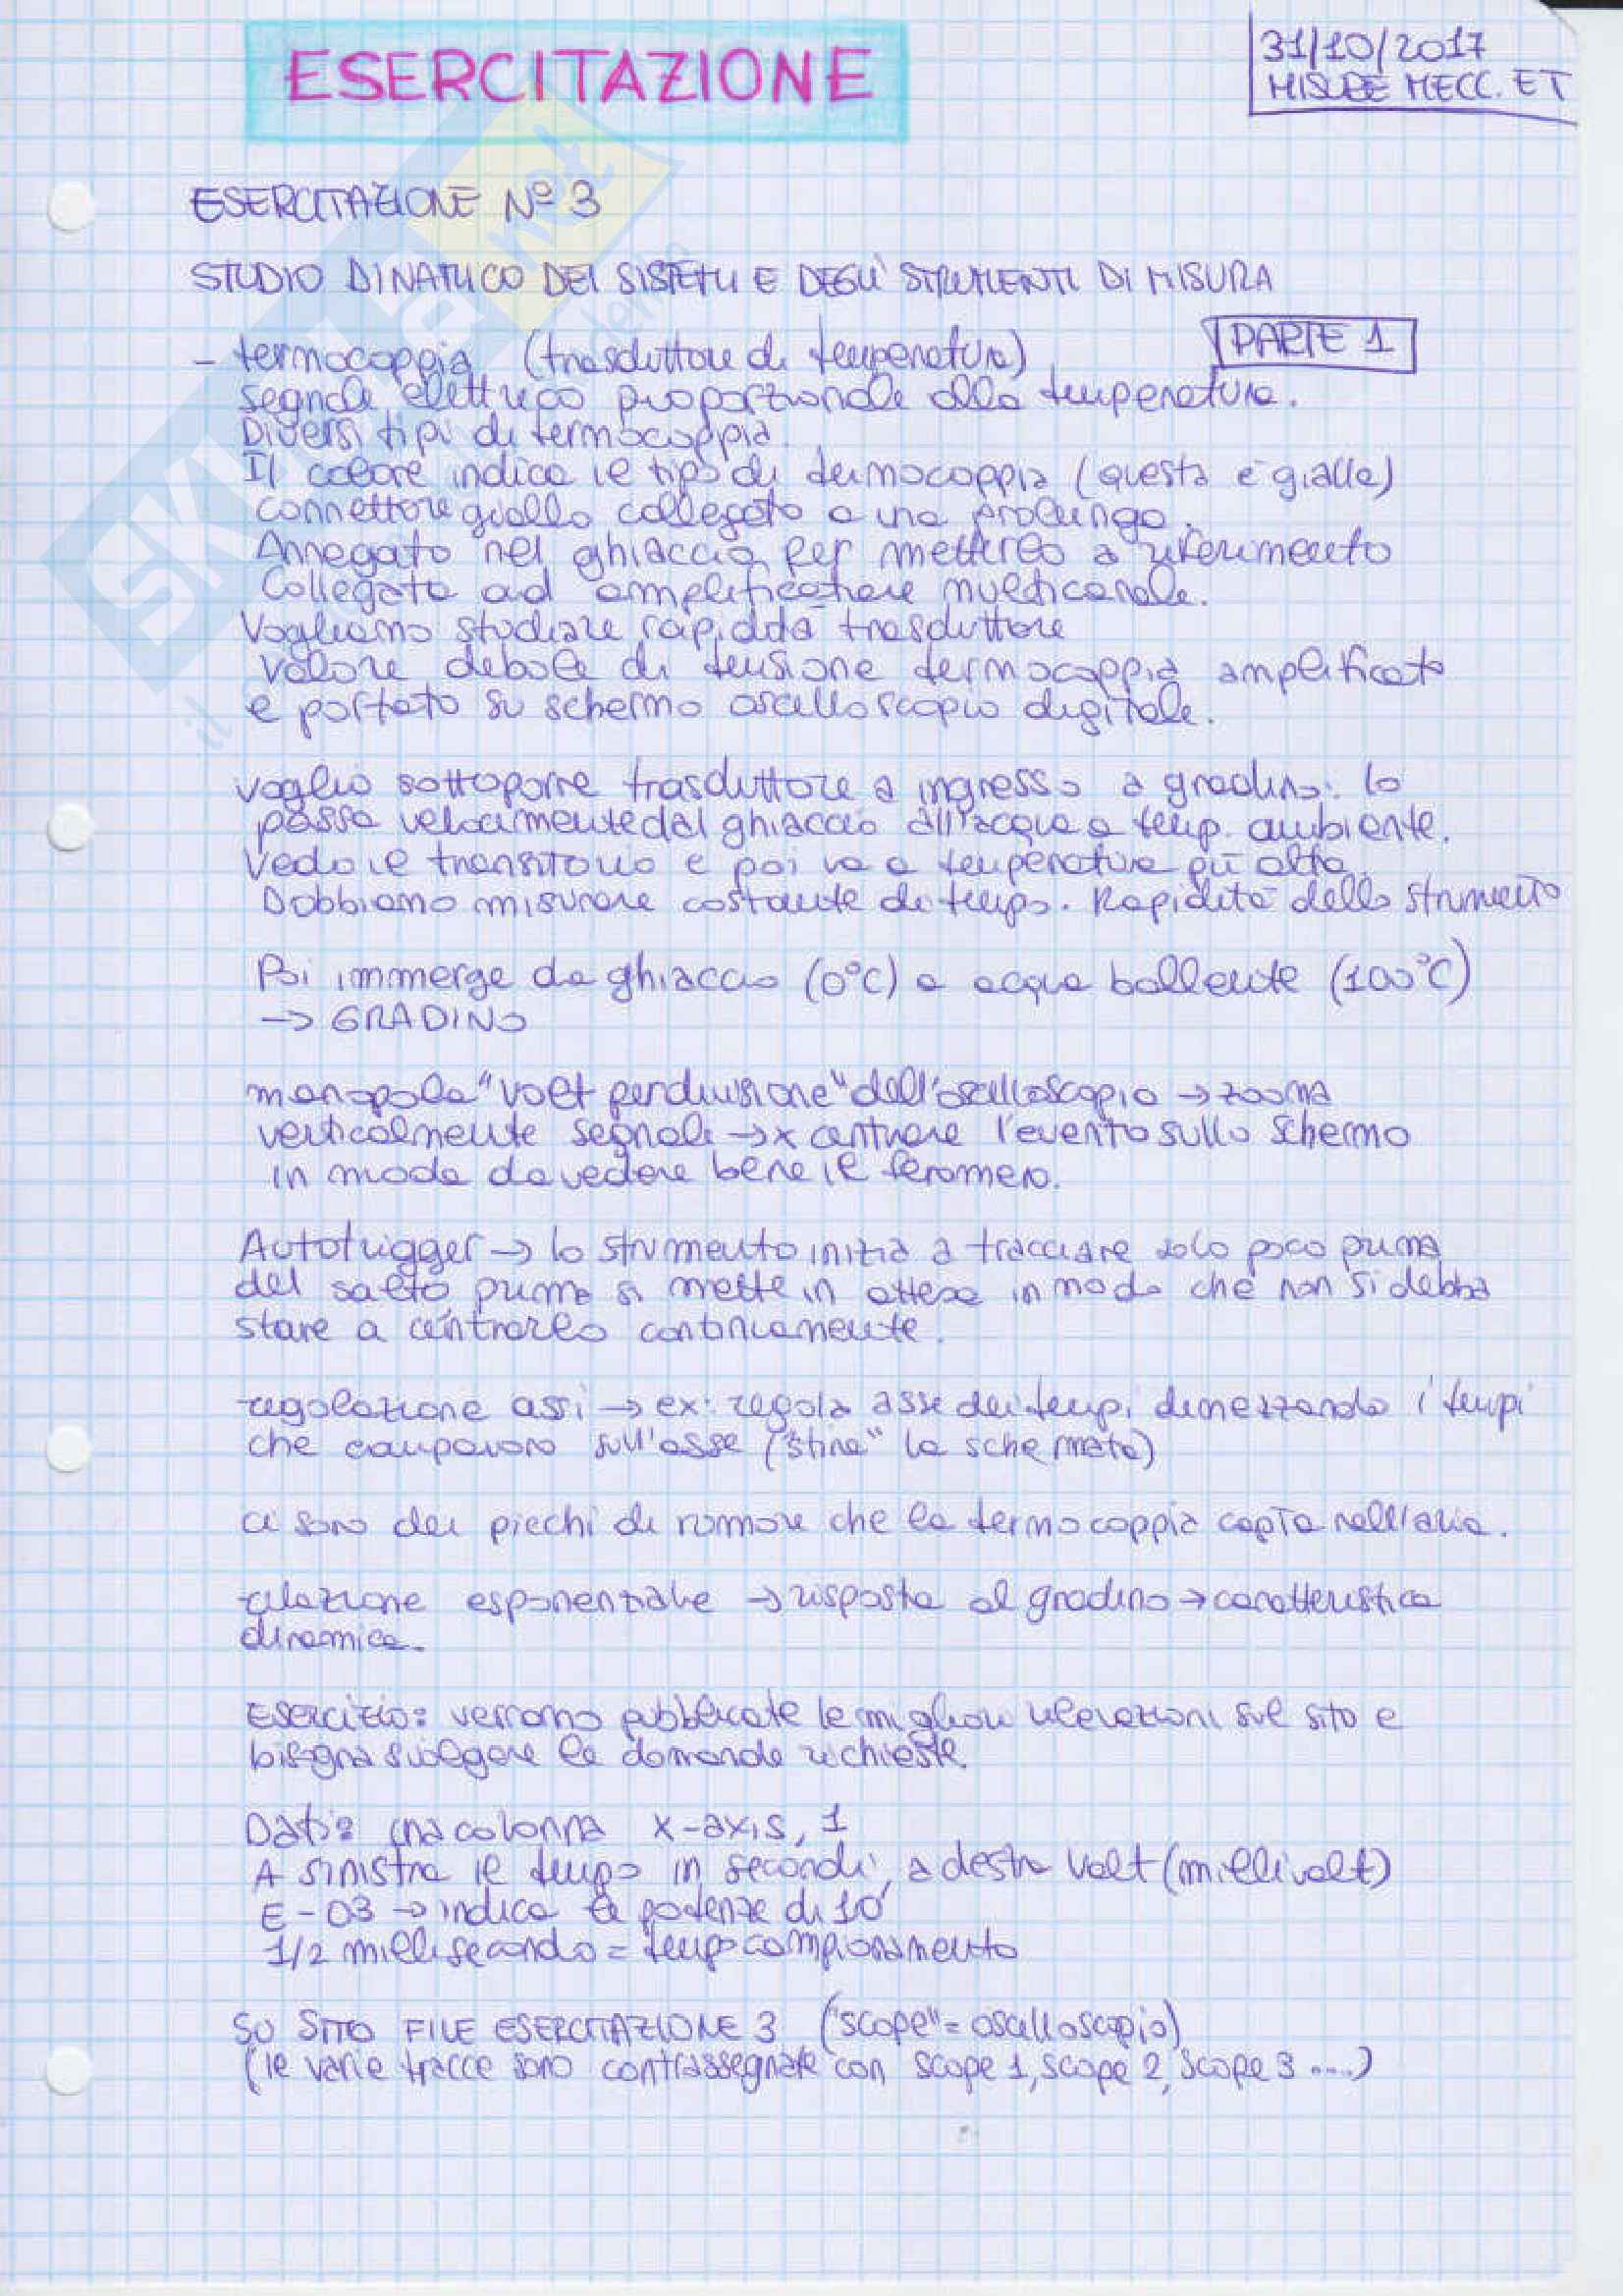 ESERCITAZIONE
31/10/2017
MISURE MECC. ET
ESERCITAZIONE Nº 3
STUDIO DINAMICO DEI SISTEMI E DEGLI STRUMENTI DI MISURA
PARTE 1
- termocoppia (trasduttore di temperatura)
segnale elettrico proporzionale alla temperatura.
Diversi tipi di termocoppia.
Il colore indica il tipo di termocoppia (questa è gialla)
connettore giallo collegato a una prolunga.
Annegato nel ghiaccio per metterlo a riferimento
Collegato ad amplificatore multicanale.
Vogliamo studiare rapidità trasduttore
valore debole di tensione termocoppia amplificato
e portato su schermo oscilloscopio digitale.
voglio sottoporre trasduttore a ingresso a gradino: lo
passa velocemente dal ghiaccio all'acqua a temp. ambiente.
Vedo il transitorio e poi va a temperatura più alta.
Dobbiamo misurare costante di tempo. Rapidità dello strumento
Poi immerge da ghiaccio (0°C) a acqua bollente (100°C)
→ GRADINO
manopola "volt per divisione" dell'oscilloscopio → zooma
verticalmente segnale → x centrare l'evento sullo schermo
in modo da vedere bene il fenomeno.
Autotrigger → lo strumento inizia a tracciare solo poco prima
del salto, prima si mette in attesa in modo che non si debba
stare a centrarlo continuamente.
regolazione assi → ex: regola asse dei tempi dimezzando i tempi
che comparono sull'asse ("stira" la schermata)
ci sono dei picchi di rumore che la termocoppia capta nell'aria.
relazione esponenziale → risposta al gradino → caratteristica
dinamica.
Esercizio: verranno pubblicate le migliori rilevazioni sul sito e
bisogna svolgere le domande richieste.
Dati: una colonna x-axis, 1
A sinistra il tempo in secondi, a destra Volt (millivolt)
E-03 → indica le potenze di 10
1/2 millisecondo = tempo campionamento
SU SITO FILE ESERCITAZIONE 3 ("scope" = oscilloscopio)
(le varie tracce sono contrassegnate con scope 1, scope 2, scope 3 ....)